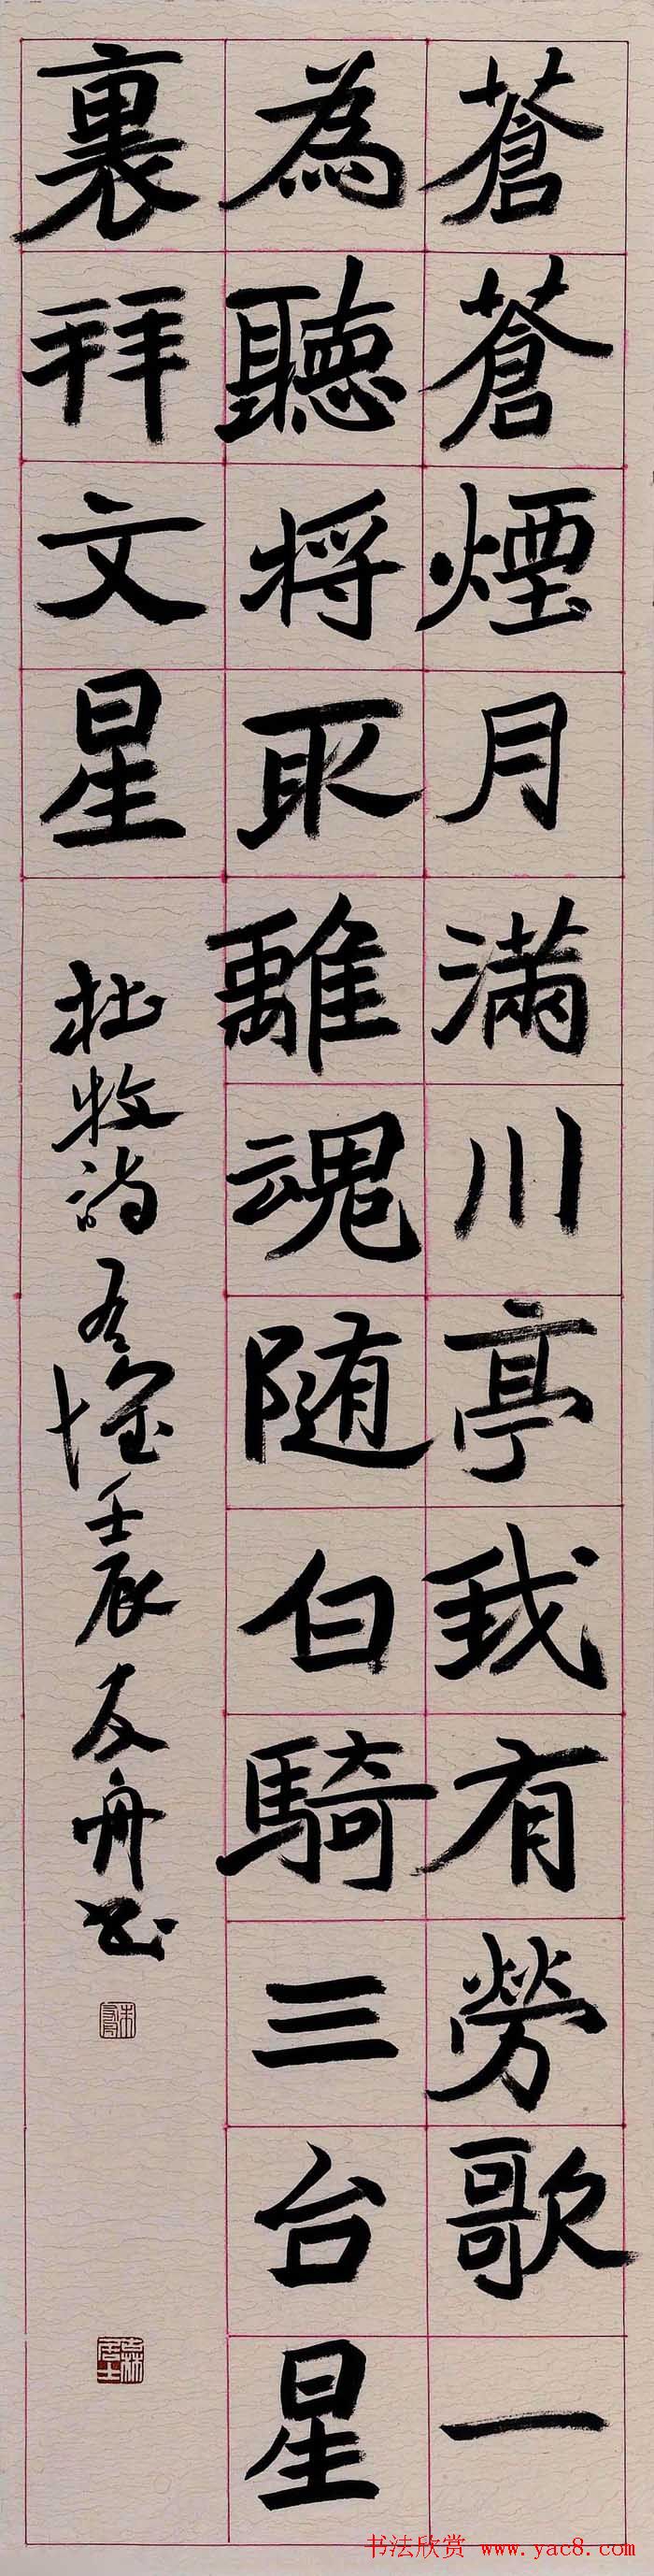 蒼蒼煙月滿川亭我有勞歌一
為聽将取離魂随白騎三台星
裏拜文星
杜牧诗 壬辰友舟书
书法欣赏 www.yac8.com